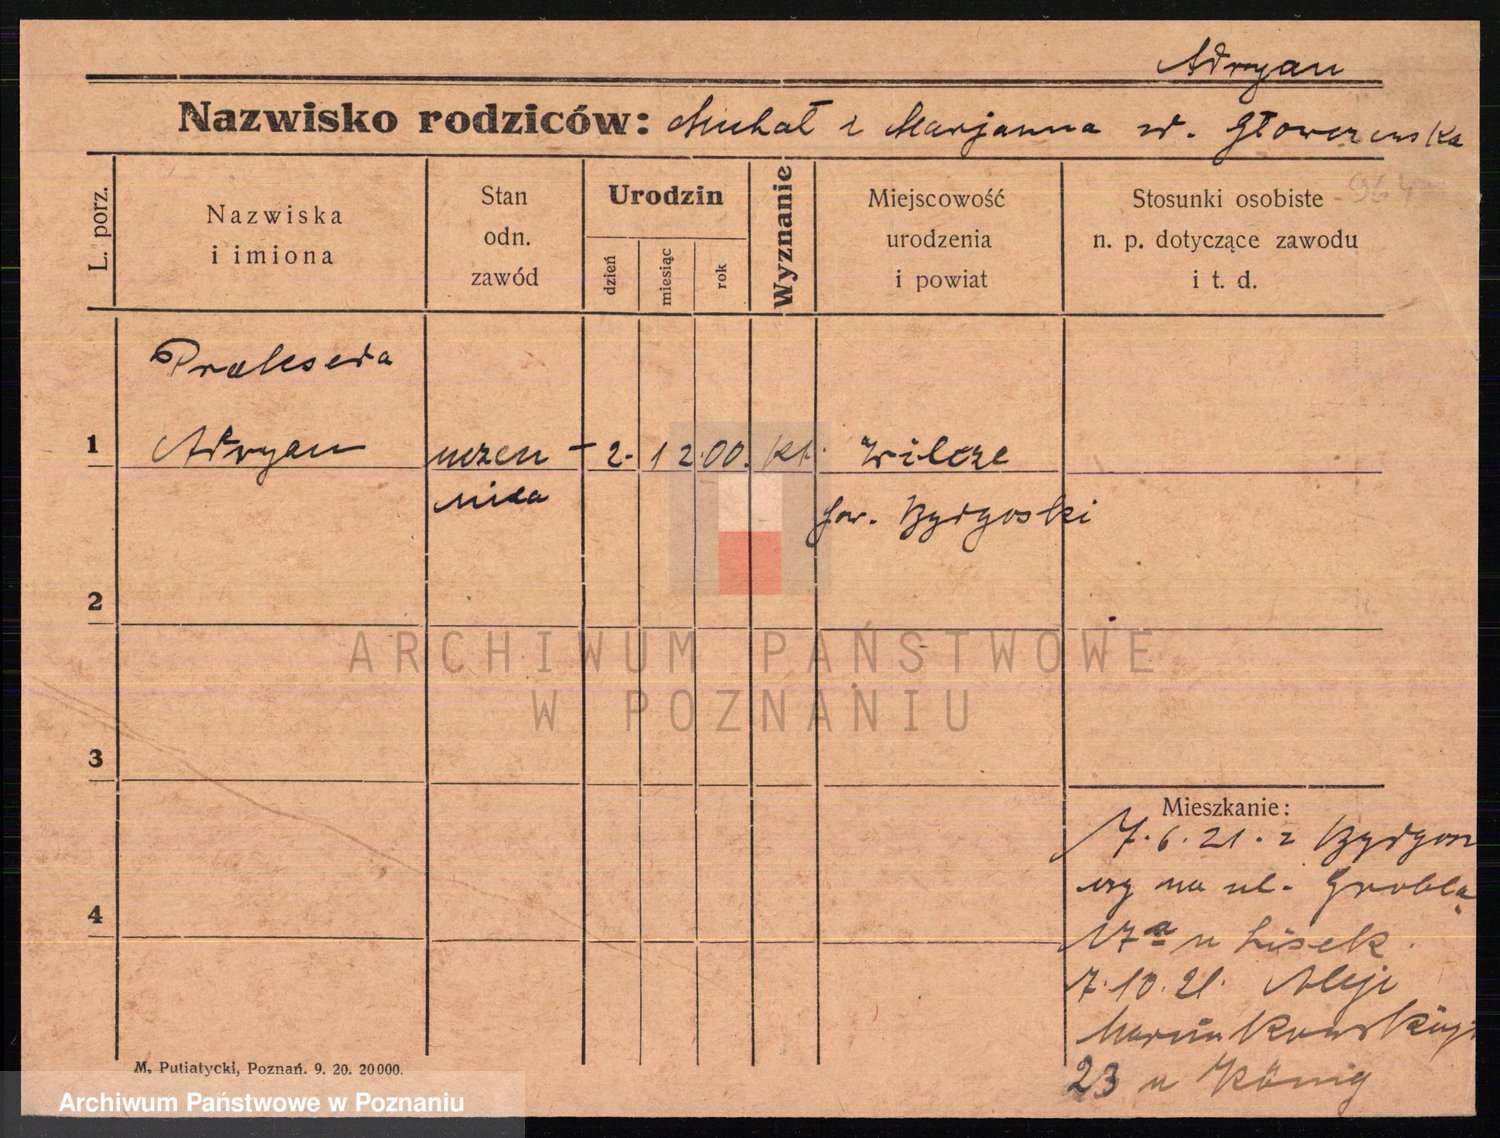 Adryan
Nazwisko rodziców: Michał i Marjanna z d. Głowczewska
L. porz.
Nazwiska
i imiona
Stan
odn.
zawód
Urodzin
dzień
miesiąc
rok
Wyznanie
Miejscowość
urodzenia
i powiat
Stosunki osobiste
n. p. dotyczące zawodu
i t. d.
Prakseda
1 Adryan uczen- 2. 12.00. kt. Wilcze
nica pow. Bydgoski
2
ARCHIWUM PAŃSTWOWE
W POZNANIU
3
Mieszkanie:
7.6.21. z Bydgosz
czy na ul. Grobla
4
17a u Lisek.
7.10.21. Aleje
Marcinkowskiego
23 u König
M. Putiatycki, Poznań. 9. 20. 20000.
Archiwum Państwowe w Poznaniu